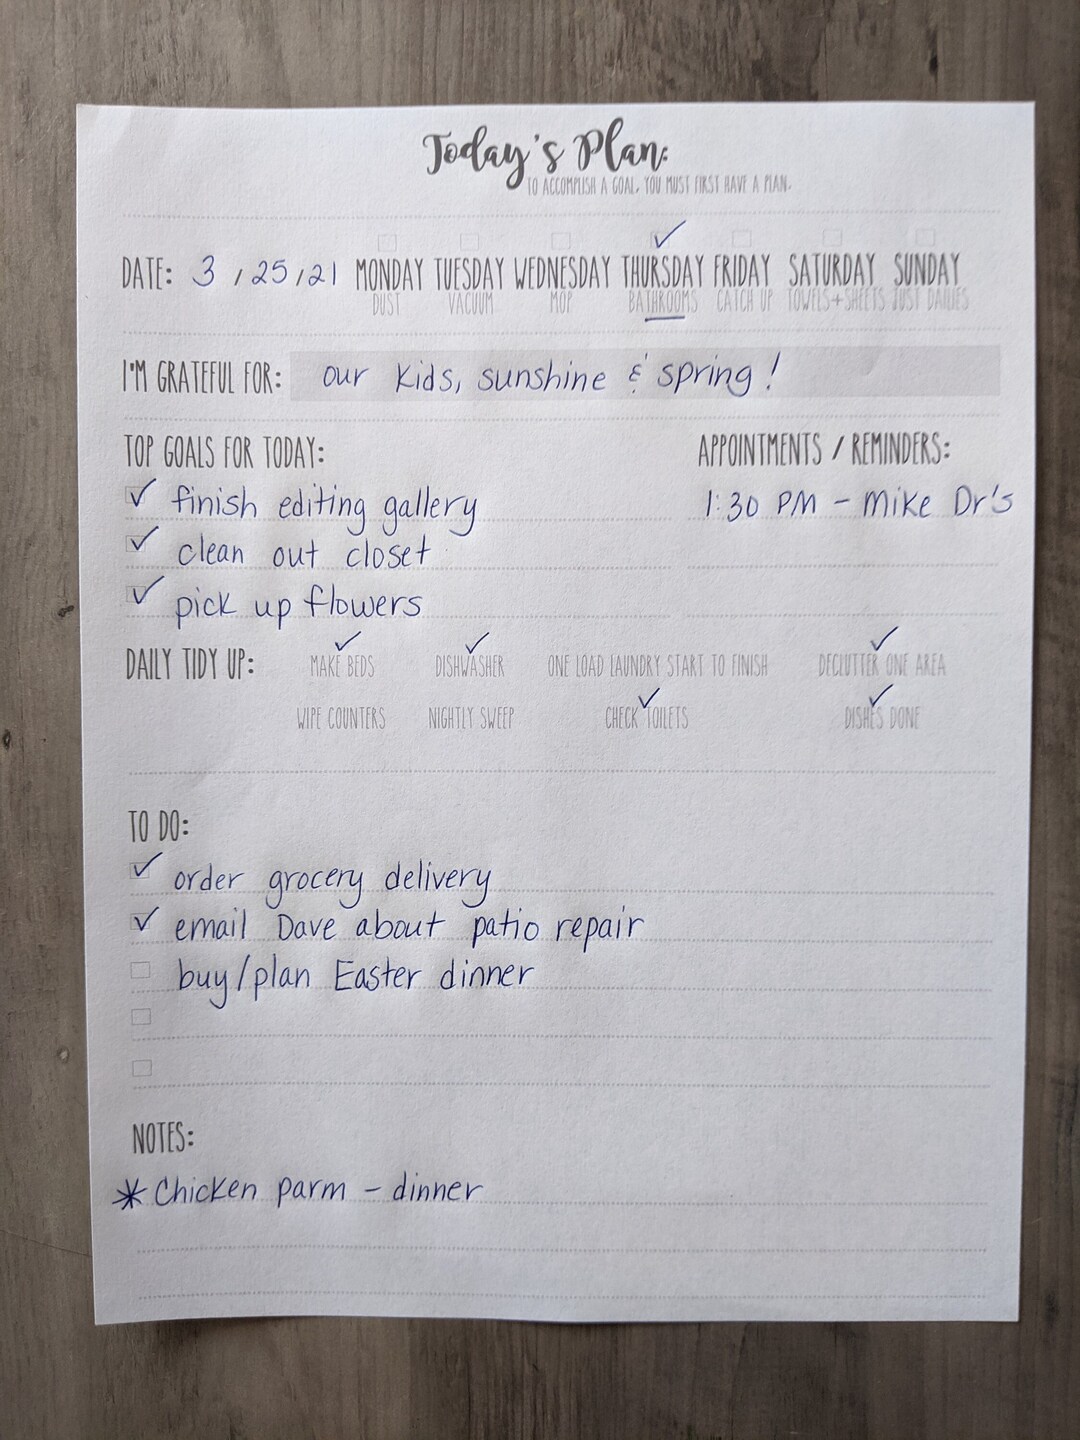 Today's Plan:
TO ACCOMPLISH A GOAL, YOU MUST FIRST HAVE A PLAN.
DATE: 3 / 25 / 21 MONDAY TUESDAY WEDNESDAY THURSDAY FRIDAY SATURDAY SUNDAY
DUST VACUUM MOP BATHROOMS CATCH UP TOWELS+SHEETS JUST DAILIES
I'M GRATEFUL FOR: our kids, sunshine & spring!
TOP GOALS FOR TODAY:
✓ finish editing gallery
✓ clean out closet
✓ pick up flowers
APPOINTMENTS / REMINDERS:
1:30 PM - Mike Dr's
DAILY TIDY UP: MAKE BEDS DISHWASHER ONE LOAD LAUNDRY START TO FINISH DECLUTTER ONE AREA
WIPE COUNTERS NIGHTLY SWEEP CHECK TOILETS DISHES DONE
TO DO:
✓ order grocery delivery
✓ email Dave about patio repair
buy/plan Easter dinner
NOTES:
* Chicken parm - dinner